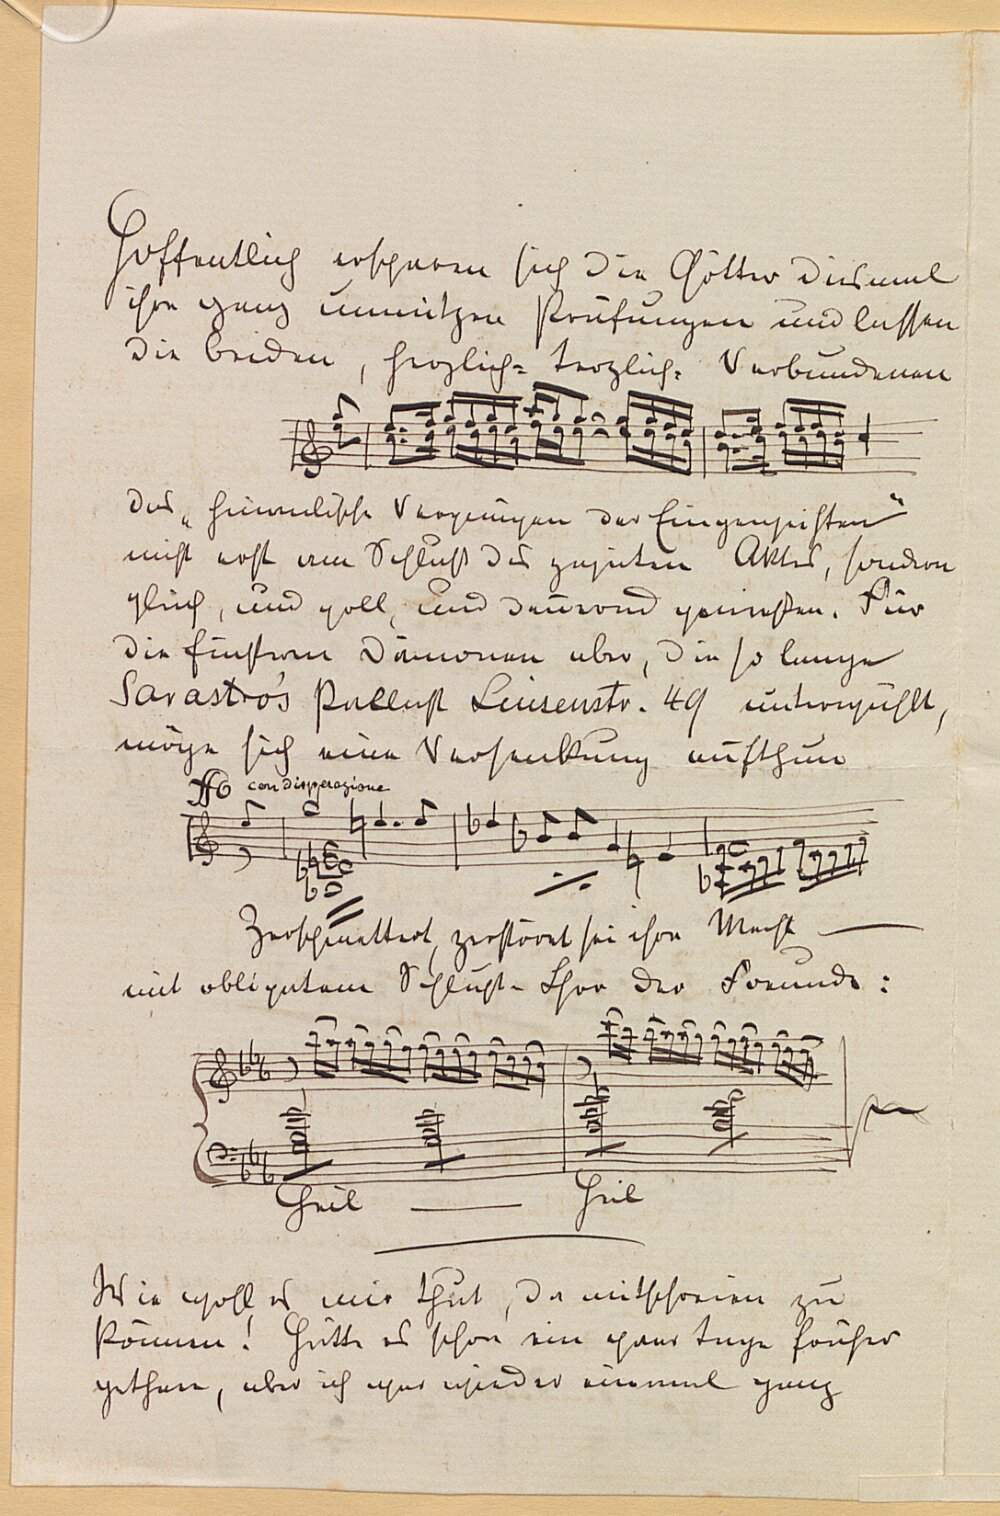 Hoffentlich ersparen sich die Götter diesmal
ihre ganz unnützen Prüfungen und lassen
die beiden, herzlich- terzlich- Verbundenen
das „himmlische Vergnügen der Eingeweihten“
nicht erst am Schluß des zweiten Aktes, sondern
gleich, und voll, und dauernd genießen. Für
die finstren Dämonen aber, die so lange
Sarastro's Pallast Luisenstr. 49 unterwühlt,
möge sich eine Versenkung aufthun
ff con disperazione
Zerschmettert, zerstöret sei ihre Macht —
mit obligatem Schluß-Chor der Freunde:
Heil — Heil
Wie wohl es mir thut, da mitschreien zu
können! Hätte es schon ein paar Tage früher
gethan, aber ich war wieder einmal ganz